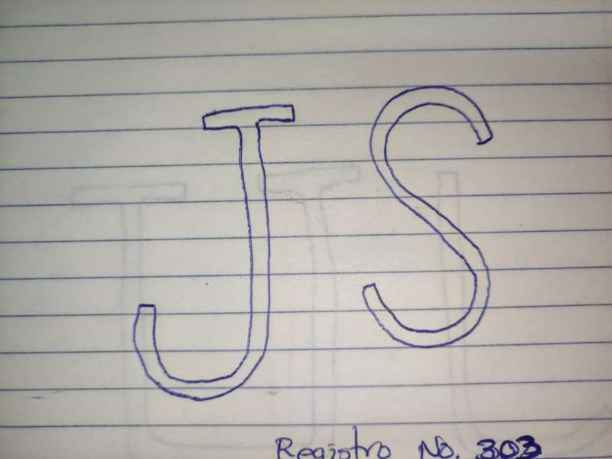 JS
Registro No. 303